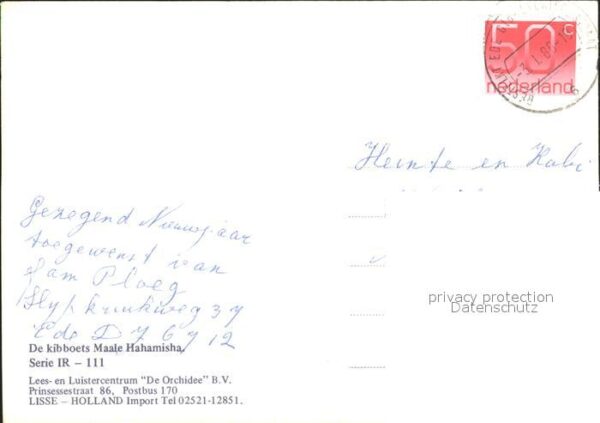 50 c
nederland
Heinte en Rabi
Gezegend Nieuwjaar
toegewenst van
fam Ploeg
37
Ede
De kibboets Maale Hahamisha.
Serie IR – 111
Lees- en Luistercentrum "De Orchidee" B.V.
Prinsessestraat 86, Postbus 170
LISSE – HOLLAND Import Tel 02521-12851.
privacy protection
Datenschutz